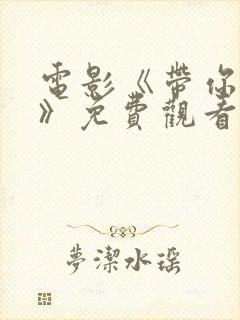 電影《帶你
》免費觀看
夢潔水瑶